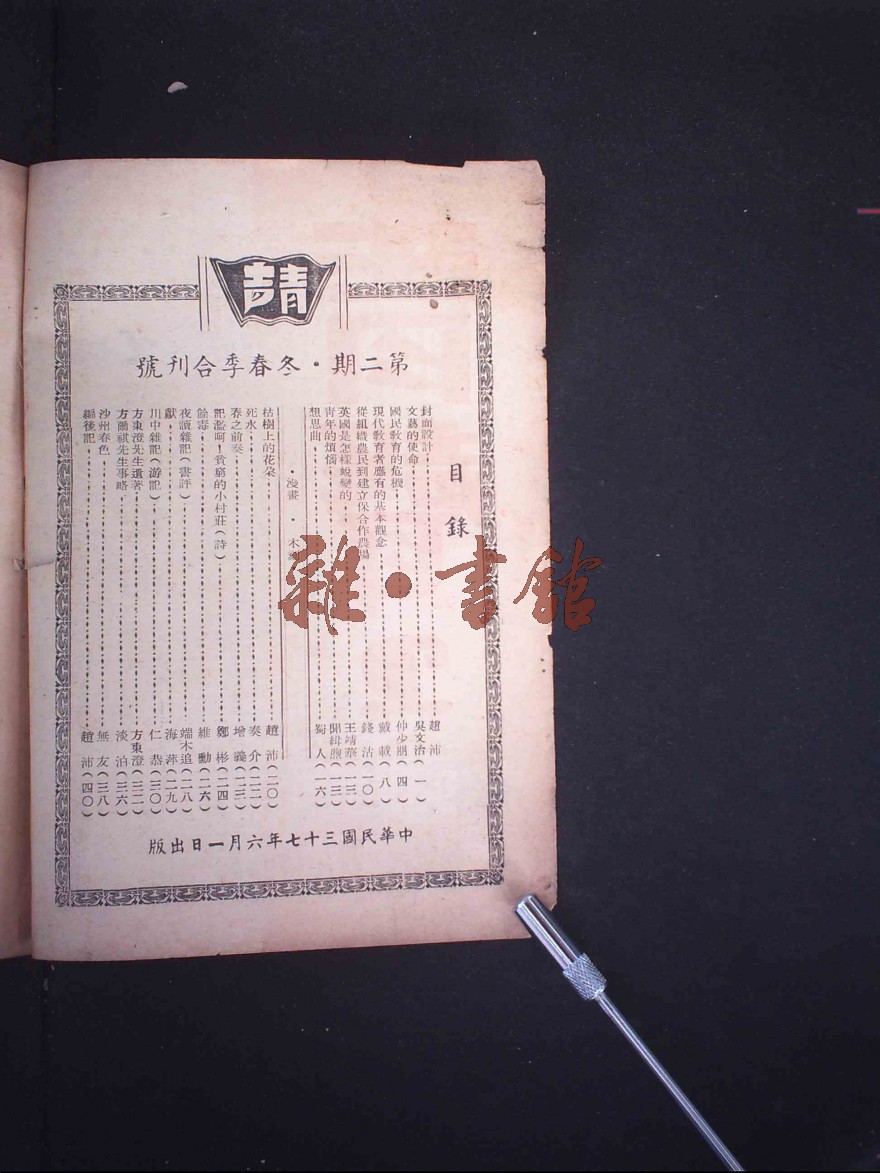 青
第二期・冬春季合刊號
目錄
封面設計 趙沛
文藝的使命 吳文治(一)
國民教育的危機 仲少朋(四)
現代教育者應有的基本觀念 戴載(八)
從組織農民到建立保合作農場 錢沽(一〇)
英國是怎樣蛻變的 王靖華(一三)
青年的煩惱 聞緝煦(一三)
想思曲 蜀人(一六)
・漫畫・木
枯樹上的花朵 趙沛(二〇)
死水 奏介(二二)
春之前奏 增義(二三)
記濫呵!貧窮的小村莊(詩) 鄭彬(二四)
餘毒 維動(二六)
夜讀雜記(書評) 端木追(二八)
獻 海萍(二九)
川中雜記(游記) 仁恭(三〇)
方東澄先生遺著 方東澄(三二)
方爾祺先生事略 淡泊(三六)
沙州春色 無友(三八)
編後記 趙沛(四〇)
中華民國三十七年六月一日出版
雜・書館